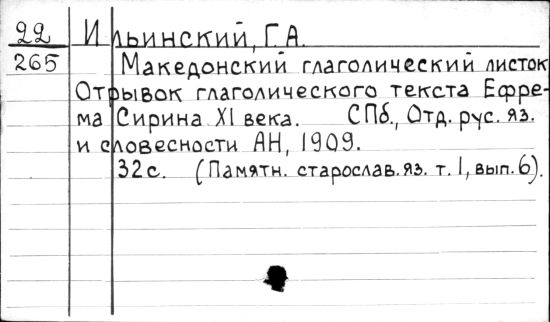 22 Ильинский, Г.А.
265 Македонский глаголический листок
Отрывок глаголического текста Ефре-
ма Сирина XI века. СПб., Отд. рус. яз.
и словесности АН, 1909.
32с. (Памятн. старослав. яз. т. 1, вып. 6).